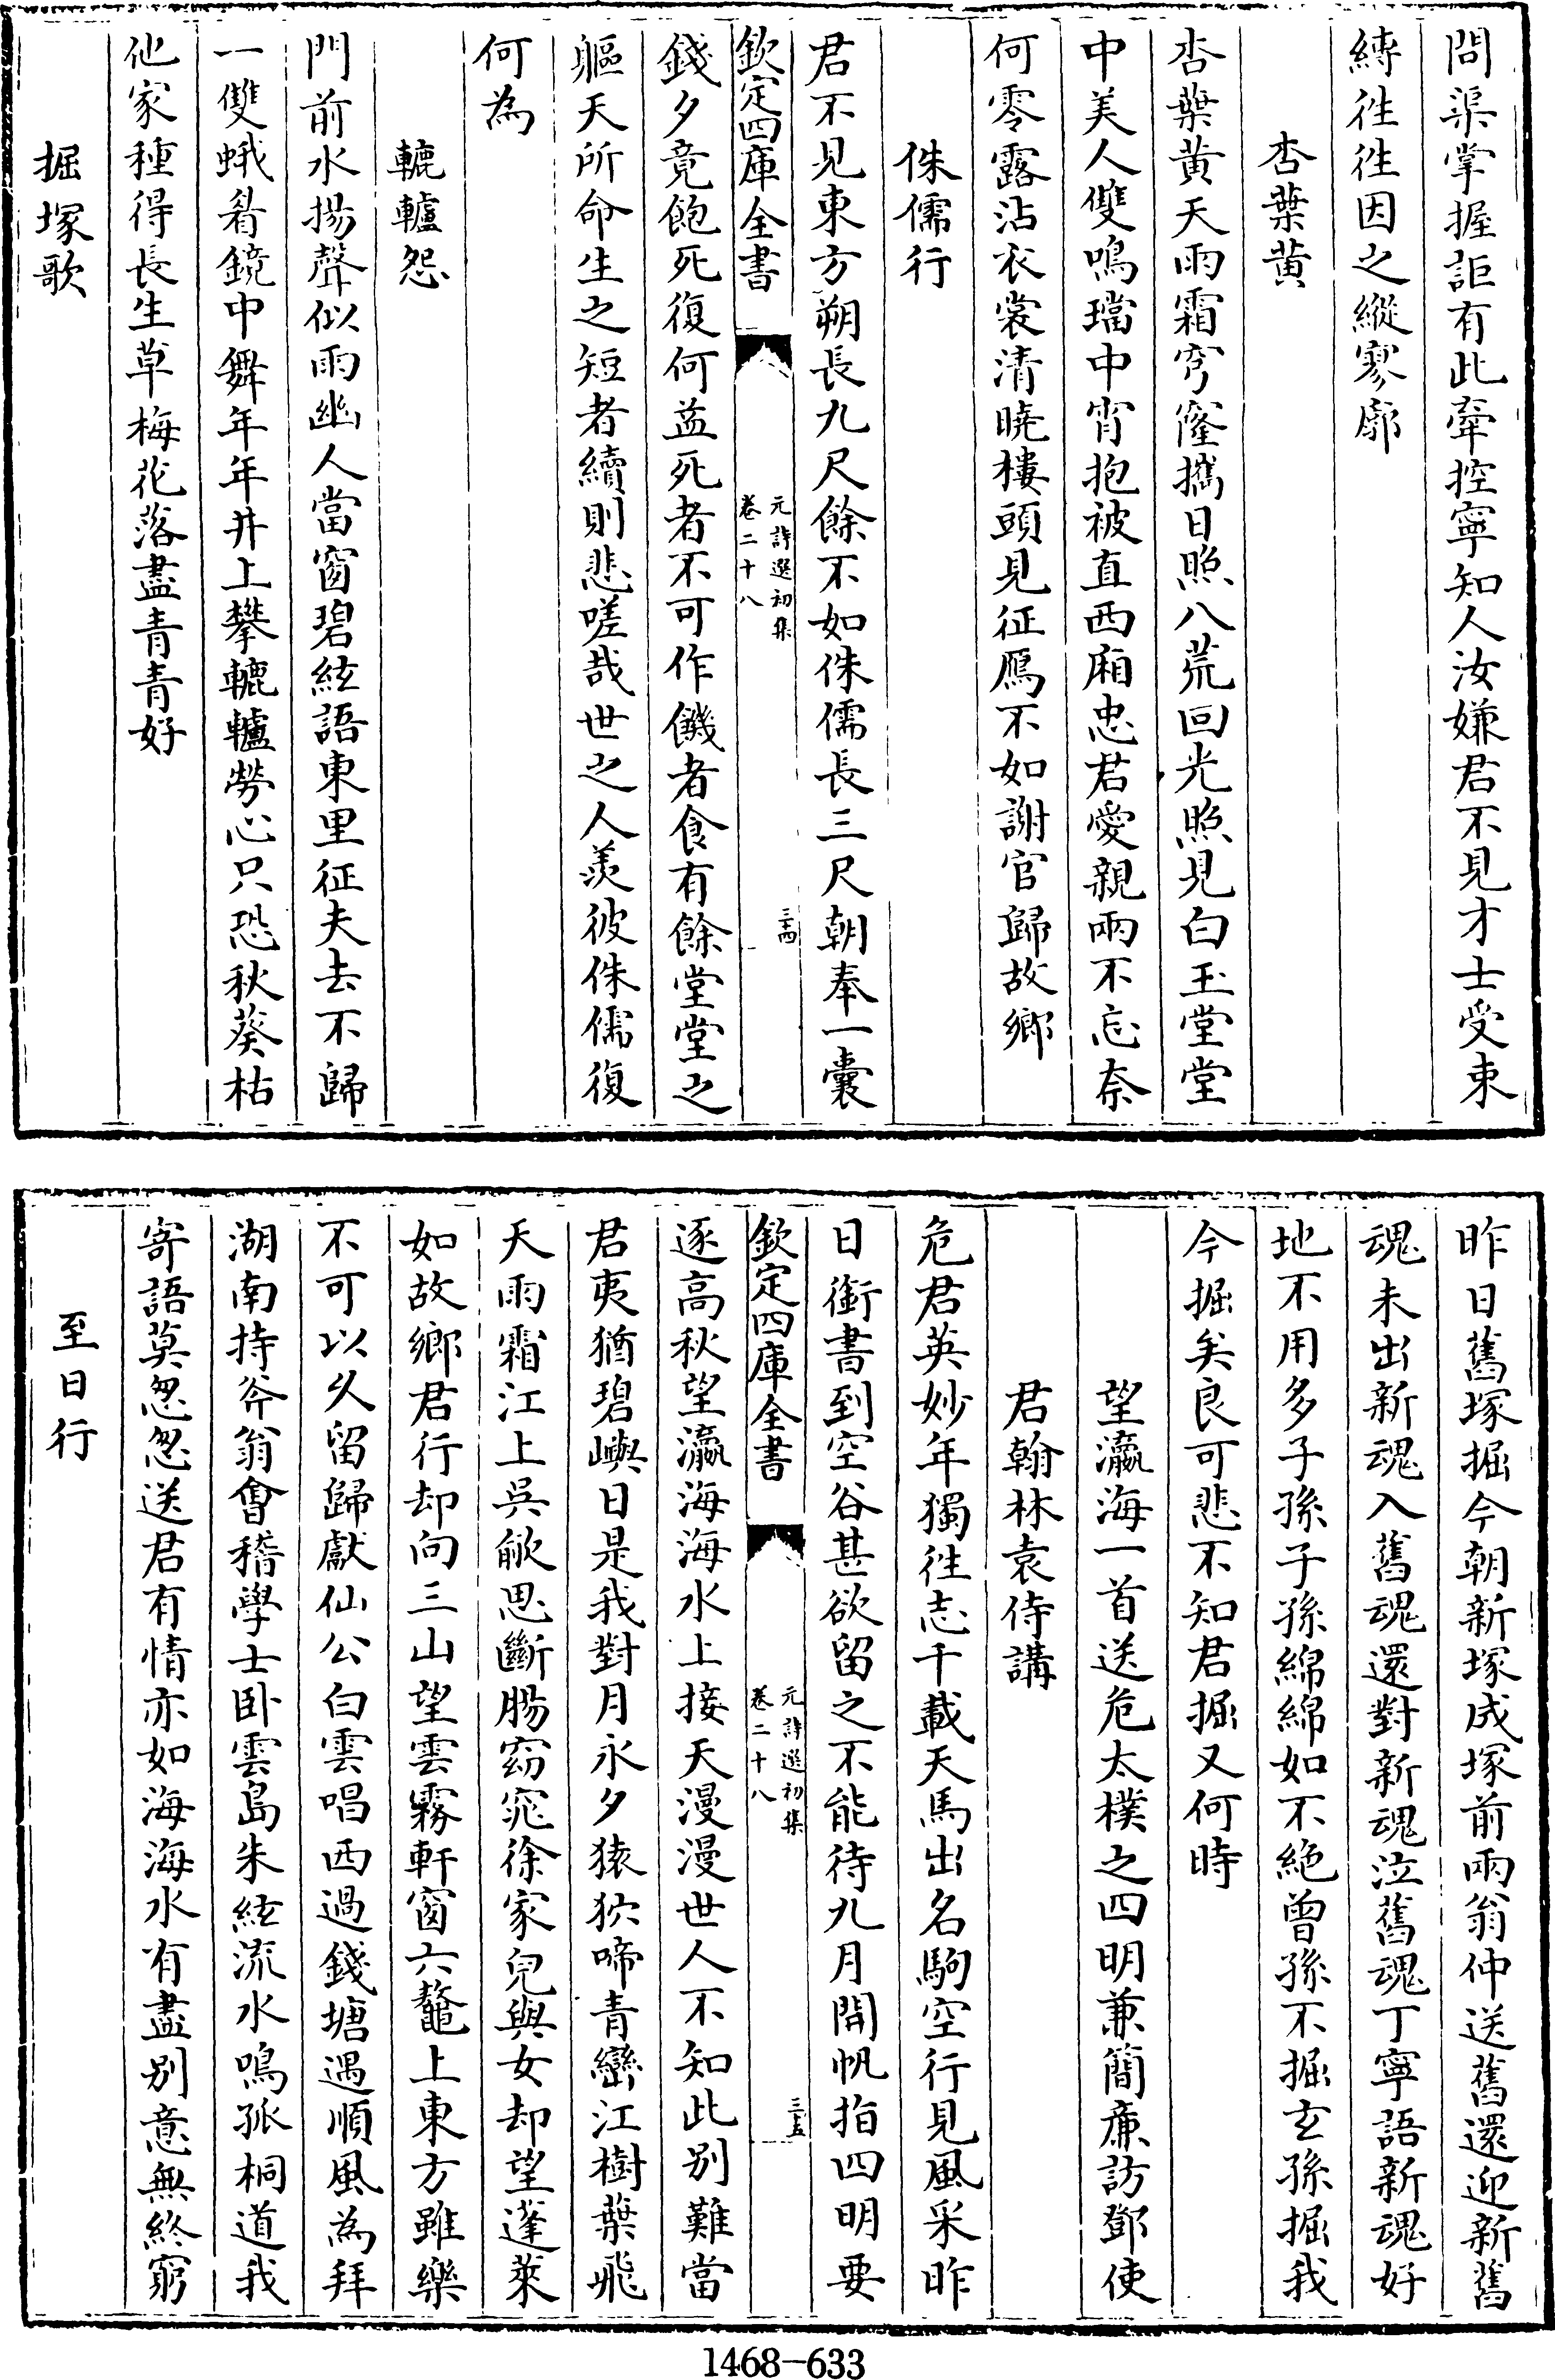 問渠掌握詎有此牽控寧知人汝嫌君不見才士受束
縛徃徃因之縱寥廓
杏葉黄
杏葉黄天雨霜穹窿攜日照八荒回光照見白玉堂堂
中美人雙鳴璫中宵抱被直西廂忠君愛親兩不忘奈
何零露沾衣裳清曉樓頭見征鴈不如謝官歸故鄉
侏儒行
君不見東方朔長九尺餘不如侏儒長三尺朝奉一囊
欽定四庫全書
元詩選初集
卷二十八
三四
錢夕竟飽死復何益死者不可作饑者食有餘堂堂之
軀天所命生之短者續則悲嗟哉世之人羨彼侏儒復
何為
轆轤怨
門前水揚聲似雨幽人當窗碧絃語東里征夫去不歸
一雙蛾眉鏡中舞年年井上攀轆轤勞心只恐秋葵枯
他家種得長生草梅花落盡青青好
掘塚歌
昨日舊塚掘今朝新塚成塚前兩翁仲送舊還迎新舊
魂未出新魂入舊魂還對新魂泣舊魂丁寧語新魂好
地不用多子孫子孫綿綿如不絶曾孫不掘玄孫掘我
今掘矣良可悲不知君掘又何時
望瀛海一首送危太樸之四明兼簡廉訪鄧使
君翰林袁侍講
危君英妙年獨徃志千載天馬出名駒空行見風采昨
日銜書到空谷甚欲留之不能待九月開帆指四明要
欽定四庫全書
元詩選初集
卷二十八
三五
逐高秋望瀛海海水上接天漫漫世人不知此别難當
君夷猶碧嶼日是我對月永夕猿狖啼青巒江樹葉飛
天雨霜江上吳歈思斷腸窈窕徐家兒與女却望蓬萊
如故鄉君行却向三山望雲霧軒窗六鼇上東方雖樂
不可以久留歸獻仙公白雲唱西過錢塘遇順風為拜
湖南持斧翁會稽學士卧雲島朱絃流水鳴孤桐道我
寄語莫怱怱送君有情亦如海海水有盡别意無終窮
至日行
1468-633